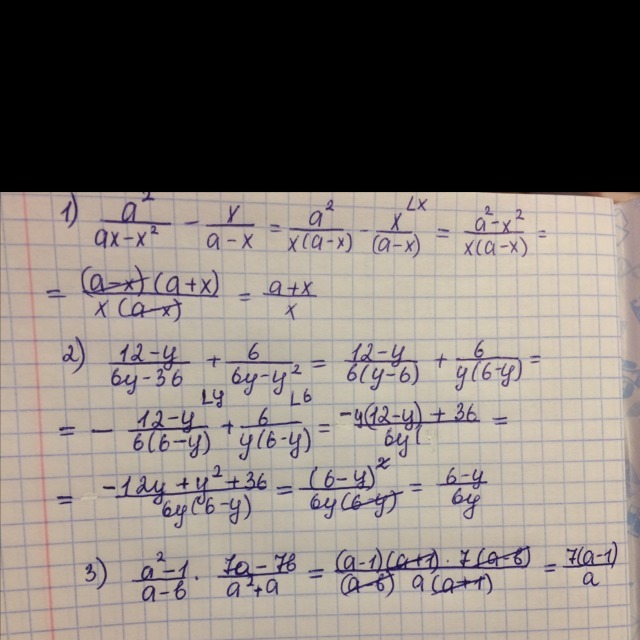 1) a²/(ax-x²) - x/(a-x) = a²/(x(a-x)) - x^(Lx)/(a-x) = (a²-x²)/(x(a-x)) =
= ((a-x)(a+x))/(x(a-x)) = (a+x)/x
2) (12-y)/(6y-36) + 6/(6y-y²) = (12-y)/(6(y-6)) + 6/(y(6-y)) =
= - (12-y)^(Ly)/(6(6-y)) + 6^(L6)/(y(6-y)) = (-y(12-y)+36)/(6y( =
= (-12y+y²+36)/(6y(6-y)) = (6-y)²/(6y(6-y)) = (6-y)/(6y)
3) (a²-1)/(a-b) · (7a-7b)/(a²+a) = ((a-1)(a+1)·7(a-b))/((a-b) a(a+1)) = 7(a-1)/a